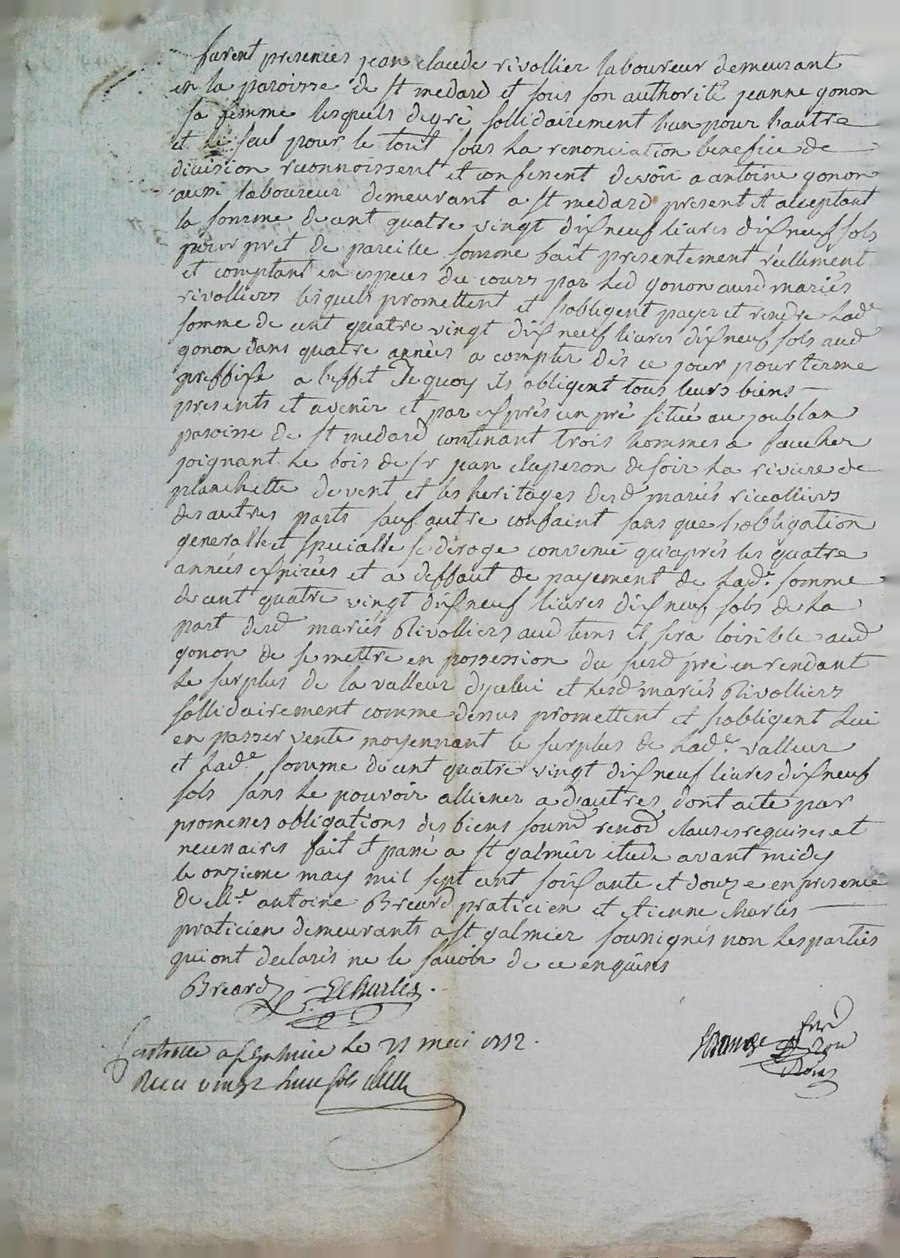 furent presences jean claude rivollier laboureur demeurant
en la paroisse de st medard et sous son authorité jeanne gonon
sa femme lesquels de gré sollidairement l'un pour l'autre
et le seul pour le tout sous la renonciation benefice de
division reconnoissent et confessent devoir a antoine gonon
aussi laboureur demeurant a st medard present et acceptant
la somme de cent quatre vingt dixneuf livres dixneuf sols
pour pret de pareille somme fait presentement réellement
et comptant en especes du cours par led gonon ausd mariés
rivolliers lesquels promettent et s'obligent payer et rendre lade
somme de cent quatre vingt dixneuf livres dixneuf sols aud
gonon dans quatre années a compter dès ce jour pour terme
preffixe a l'effet de quoy ils obligent tous leurs biens
presents et avenir et par exprès un pré situé au
paroisse de st medard contenant trois hommes a faucher
joignant le bois de sr jean claperon de soir la riviere de
planchette de vent et les heritages desd mariés rivolliers
des autres parts sauf autre confaint sans que l'obligation
generalle et specialle se déroge convenu qu'après les quatre
années expirées et a deffaut de payement de lade somme
de cent quatre vingt dixneuf livres dixneuf sols de la
part desd mariés Rivolliers aud tems il sera loisible aud
gonon de se mettre en possession du susd pré en rendant
le surplus de la valleur dycelui et lesd mariés Rivolliers
sollidairement comme dessus promettent et s'obligent lui
en passer vente moyennant le surplus de lade valleur
et lade somme de cent quatre vingt dixneuf livres dixneuf
sols sans le pouvoir alliener a d'autres dont acte par
promesses obligations des biens soumd renod clauses requises et
necessaires fait et passé a st galmier étude avant midy
le onzieme may mil sept cent soixante et douze en presence
de Me antoine Breard praticien et etienne Charles
praticien demeurants a st galmier soussignés non les parties
qui ont declarés ne le savoir de ce enquises
Breard E Charles
a st Galmier le 21 mai 1772.
Recu vingt huit sols